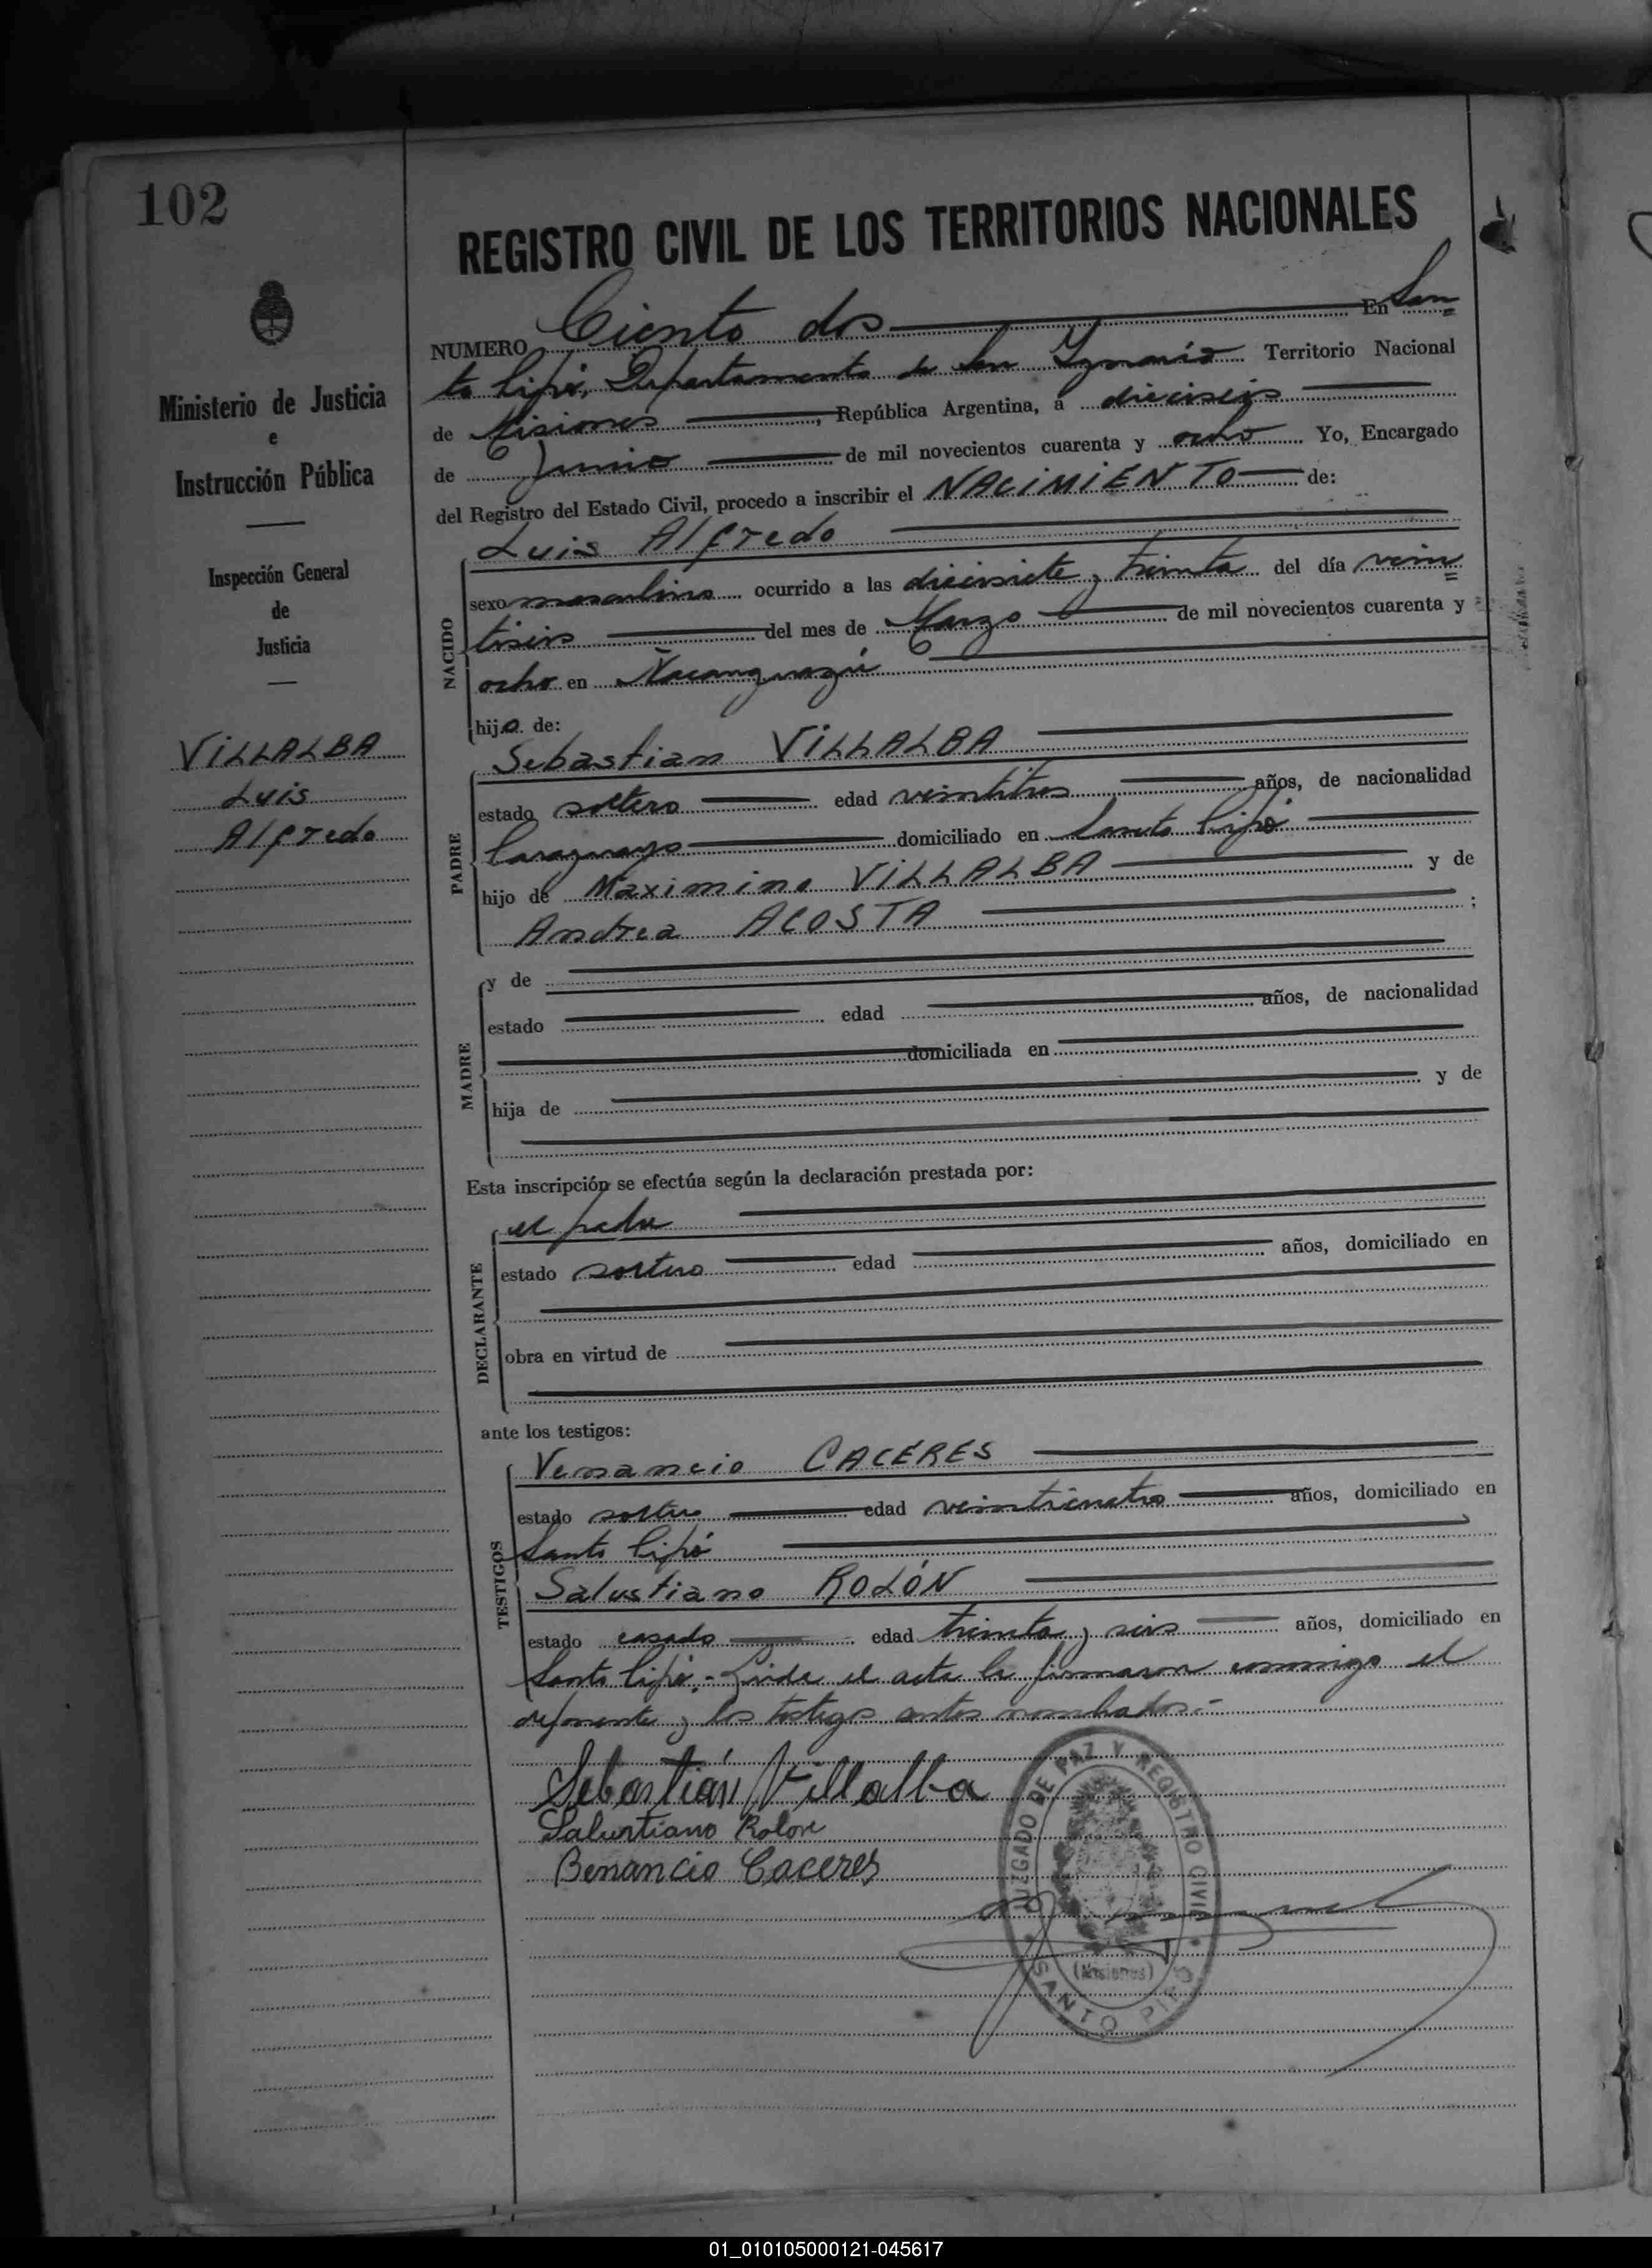 102
Ministerio de Justicia
e
Instrucción Pública
Inspección General
de
Justicia
VILLALBA
Luis
Alfredo
REGISTRO CIVIL DE LOS TERRITORIOS NACIONALES
NUMERO Ciento dos En San=
to Pipó, Departamento de San Ygnacio Territorio Nacional
de Misiones, República Argentina, a dieciseis
de Junio de mil novecientos cuarenta y ocho Yo, Encargado
del Registro del Estado Civil, procedo a inscribir el NACIMIENTO de:
NACIDO
Luis Alfredo
sexo masculino ocurrido a las diecisiete y treinta del día vein=
tiseis del mes de Marzo de mil novecientos cuarenta y
ocho en Ñacanguazú
hijo de:
PADRE
Sebastian VILLALBA
estado soltero edad veintitres años, de nacionalidad
Paraguayo domiciliado en Santo Pipó
hijo de Maximino VILLALBA y de
Andrea ACOSTA ;
MADRE
y de
estado edad años, de nacionalidad
domiciliada en
hija de y de
Esta inscripción se efectúa según la declaración prestada por:
DECLARANTE
el padre
estado soltero edad años, domiciliado en
obra en virtud de
ante los testigos:
TESTIGOS
Venancio CACERES
estado soltero edad veinticuatro años, domiciliado en
Santo Pipó
Salustiano ROLÓN
estado casado edad treinta y seis años, domiciliado en
Santo Pipó.- Leida el acta la firmaron conmigo el
deponente y los testigos antes nombrados.-
Sebastián Villalba
Salustiano Rolon
Benancio Caceres
JUZGADO DE PAZ Y REGISTRO CIVIL
(Misiones)
SANTO PIPÓ
01_010105000121-045617